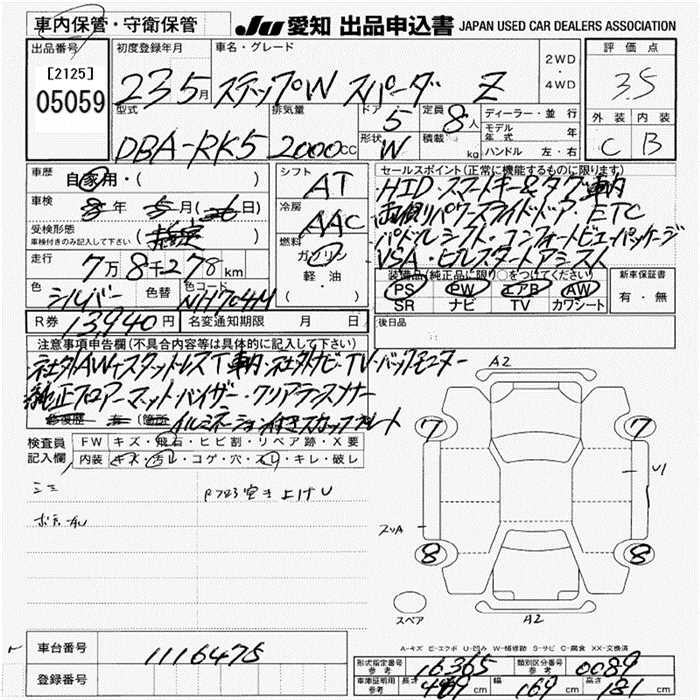 車内保管・守衛保管
JU 愛知 出品申込書 JAPAN USED CAR DEALERS ASSOCIATION
出品番号
[2125]
05059
初度登録年月 車名・グレード
23.5月 ステップW スパーダ Z
2WD
・
4WD
評価点
3.5
外装 内装
C B
型式 排気量 ドア 定員
DBA-RK5 2000cc 5 8人
形状 積載
W kg
ディーラー・並行
モデル年式 年
ハンドル 左・右
車歴 自家用・( )
車検 年 5月 ( 日)
受検形態
車検付きのみ記入して下さい
走行 7万8千278km
色 色替 色コード
シルバー NH704M
R券 13940円 名変通知期限 月 日
シフト AT
冷房 AAC
燃料 ガソリン
軽・油
( )
セールスポイント(正常に機能するものに限ります)
HID・スマートキー&タグ車内
両側パワースライドドア・ETC
パドルシフト・コンフォートビューパッケージ
VSA・ヒルスタートアシスト
装備品(純正品に限り○をつけてください)
PS PW エアB AW
SR ナビ TV カワシート
新車保証書
有・無
後日品
注意事項申告欄(不具合内容等は具体的に記入して下さい)
社外AW・スタッドレスT車内・社外ナビ・TV・バックモニター
純正フロアーマット・バイザー・クリアランスソナー
修復歴 有 (箇所
イルミネーション付きスカッフプレート
検査員記入欄
FW キズ・飛石・ヒビ割・リペア跡・X要
内装 キズ・汚レ・コゲ・穴・スレ・キレ・破レ
A2
7 7
U1
8 8
スペア
A2
A-キズ E-エクボ U-凹み W-補修跡 S-サビ C-腐食 XX-交換済
車台番号 1116475
登録番号
形式指定番号 参考 16365 類別区分番号 参考 0089
車庫証明用 参考 長さ 469cm 幅 169cm 高さ 181cm